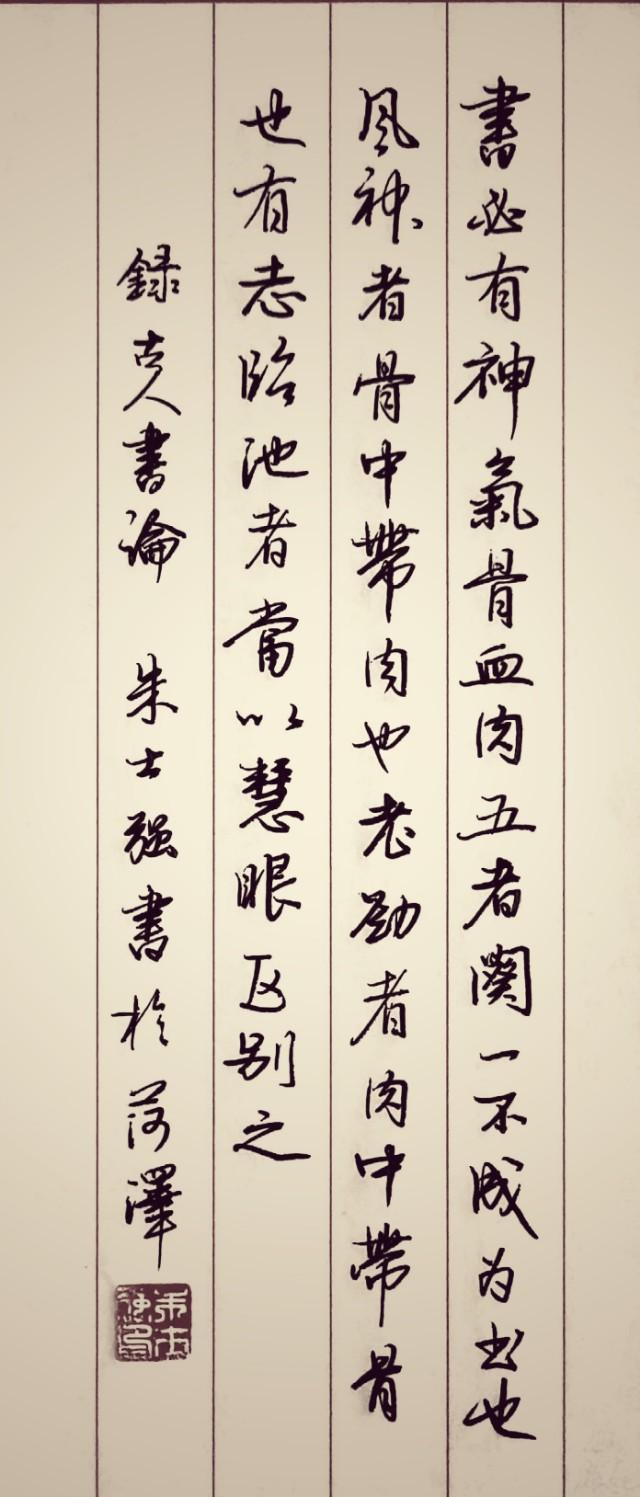 書必有神氣骨血肉五者闕一不成为书也
風神者骨中帶肉也老勁者肉中帶骨
也有志臨池者當以慧眼区别之
錄古人書論 朱士强書於菏澤